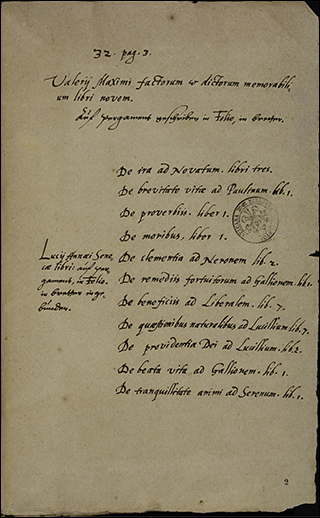 32. pag. 3.
Valerij Maximi factorum & dictorum memorabili,
um libri novem.
Auf pergament geschriben in Folio, in bretter.
De ira ad Novatum. libri tres.
De brevitate vitæ ad Paulinum. lib. 1.
De proverbiis. liber 1.
De moribus, liber 1.
Lucij Annæi Sene,
cæ librij auff per,
gament, in Folio.
in bretter inge,
bunden.
De clementia ad Neronem lib. 2.
De remediis fortuitorum ad Gallionem. lib. 1.
De beneficiis ad Liberalem. lib. 7.
De quæstionibus naturalibus ad Lucillium lib. 7.
De providentia Dei ad Lucillium. lib. 2.
De beata vita ad Gallionem. lib. 1.
De tranquillitate animi ad Serenum. lib. 1.
2